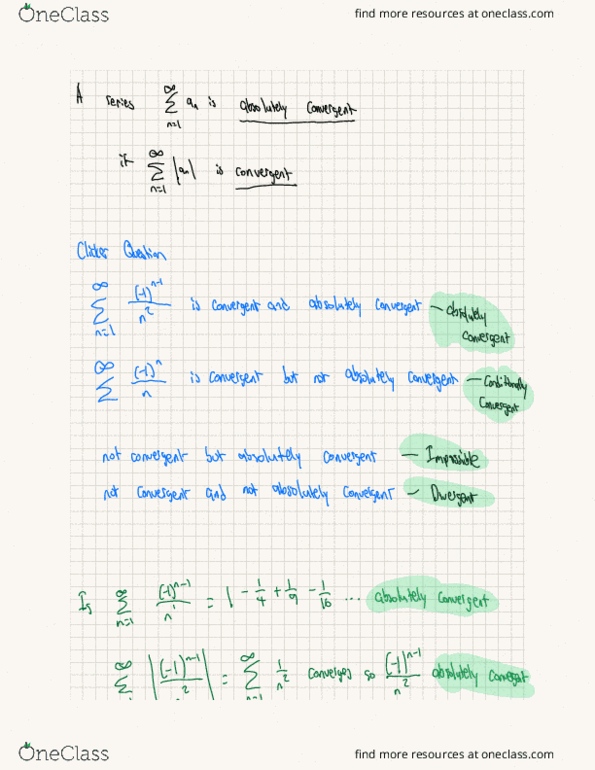 OneClass
find more resources at oneclass.com
A series ∑_{n=1}^{∞} a_n is absolutely convergent
if ∑_{n=1}^{∞} |a_n| is convergent
Clicker Question
∑_{n=1}^{∞} (-1)^{n-1}/n^2 is convergent and absolutely convergent — absolutely convergent
∑^{∞} (-1)^n/n is convergent but not absolutely convergent — Conditionally Convergent
not convergent but absolutely convergent — Impossible
not convergent and not absolutely convergent — Divergent
Is ∑_{n=1}^{∞} (-1)^{n-1}/n^1 = 1 - 1/4 + 1/9 - 1/16 ... absolutely convergent
∑^{∞} |(-1)^{n-1}/2| = ∑_{n=1}^{∞} 1/n^2 converges so (-1)^{n-1}/n^2 absolutely convergent
OneClass
find more resources at oneclass.com